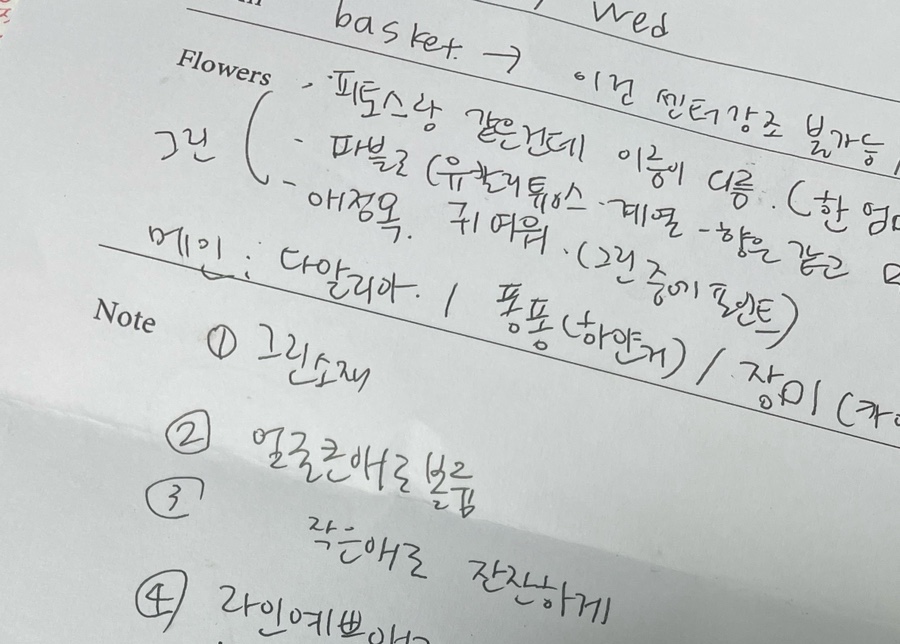 Wed
basket → 이건 센터강조 불가능
Flowers
그린
· 피토스랑 같은건데 이름이 다름. (한
- 파블로 (유칼리튭스 계열 - 향은 같고
- 애정목. 귀여워. (그린 중에 포인트)
메인: 다알리아. / 퐁퐁(하얀거) / 장미(
Note ① 그린소재
② 얼굴큰애로 볼륨
③ 작은애로 잔잔하게
④ 라인예쁜애로